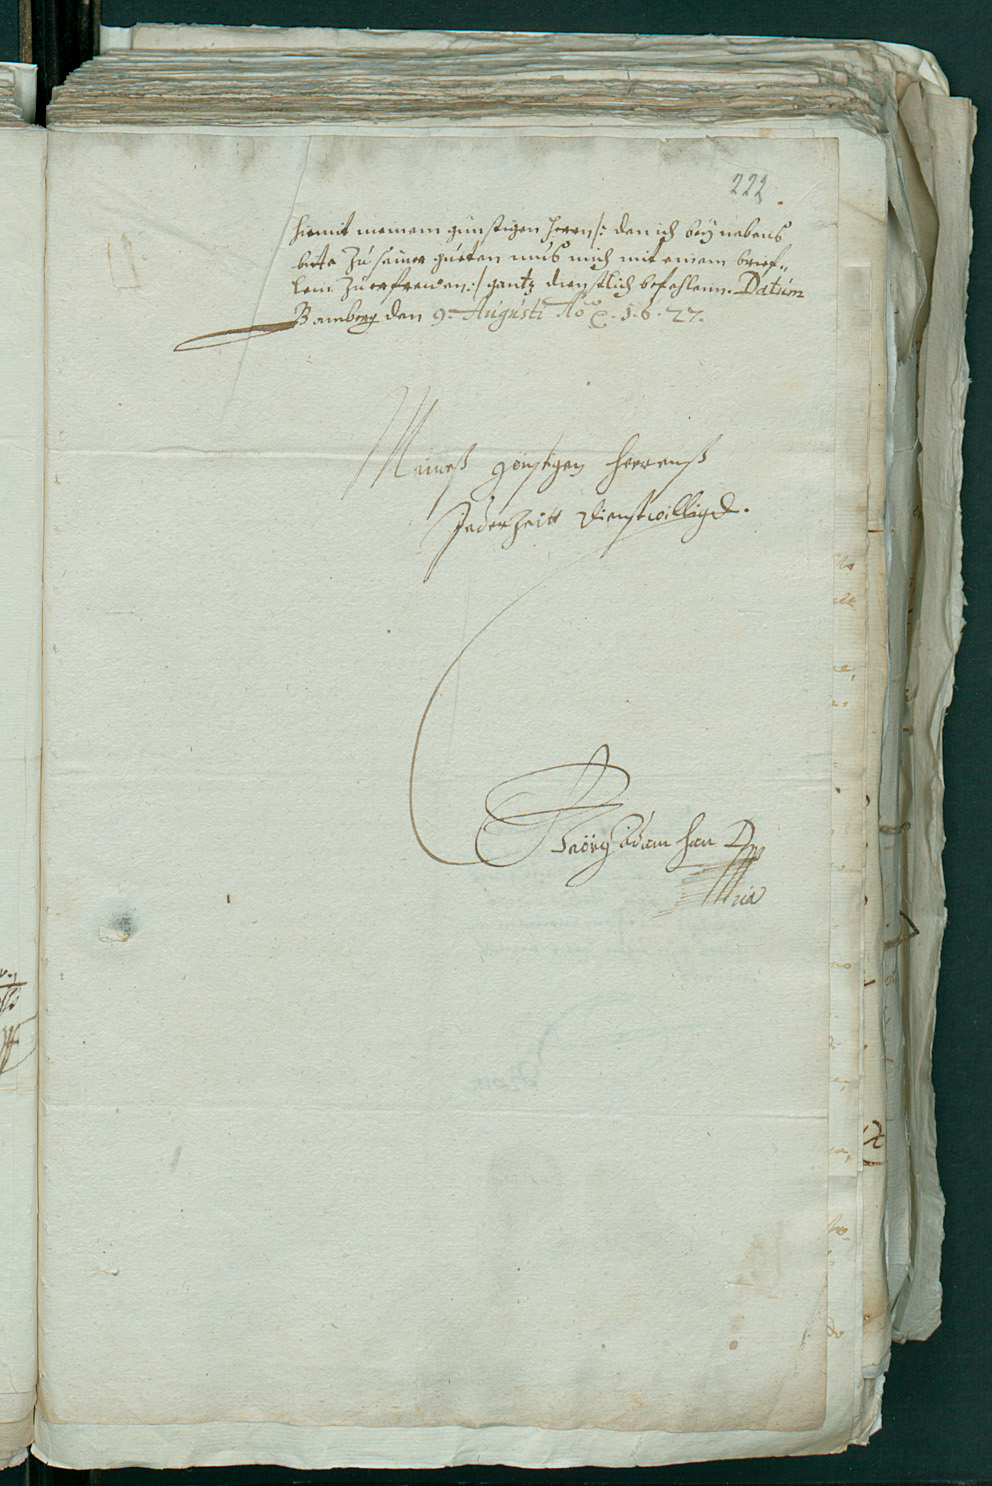 222
hiemit meinem günstigen herrn /: den ich beÿ nebens
bitte zu seiner gueten mus mich mit einem brief„
lein zuerfrewen :/ gantz dienstlich befehlenn. Datum
Bamberg den 9. Augusti Aõ 1.6.27.
Meineß günstigen Herrenß
Jederzeitt Dienstwilliger.
Geörg Adam Han D